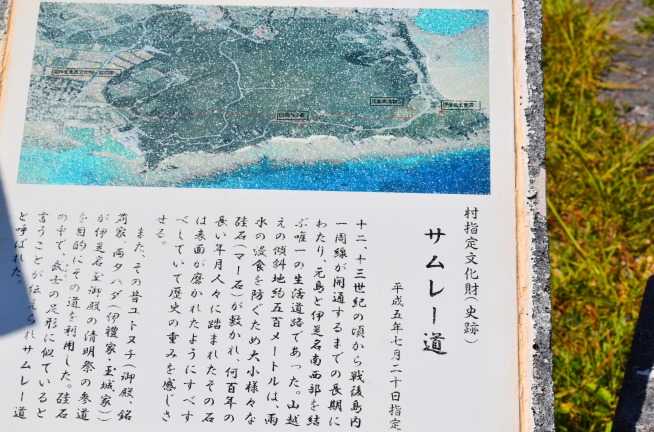 村指定文化財(史跡)
サムレー道
平成五年七月二十日指定
十二、十三世紀の頃から戦後島内
一周線が開通するまでの長期に
わたり、元島と伊是名南西部を結
ぶ唯一の生活道路であった。山越
えの傾斜地約五百メートルは、雨
水の浸食を防ぐため大小様々な
硅石(マー石)が敷かれ、何百年の
長い年月人々に踏まれたその石
は表面が磨かれたようにすべす
べしていて歴史の重みを感じさ
せる。
また、その昔ユトヌチ(御殿、銘
苅家、両タハダ(伊禮家・玉城家))
が伊是名玉御殿の清明祭の参道
を目的にその道を利用した。硅石
の中で、武士の足形に似ていると
言うことが伝えられサムレー道
と呼ばれた。